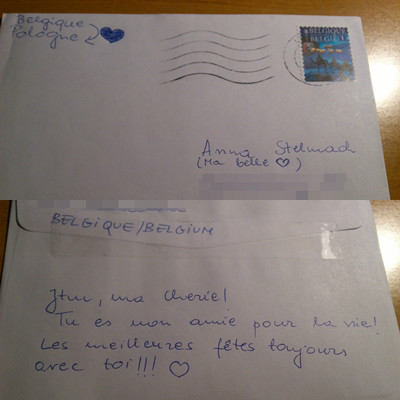 Belgique
Pologne
BELGIQUE
BELGIË
Anna Stelmach
(Ma belle ♡)
BELGIQUE/BELGIUM
ma cherie!
Tu es mon amie pour la vie!
Les meilleures fêtes toujours
avec toi!!! ♡